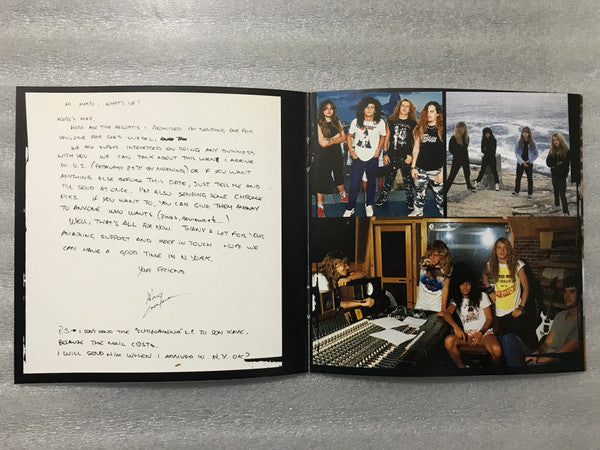 HI MARO, WHAT'S UP?
HERE'S MAX.
HERE ARE THE RECORDS I PROMISED IN SENDING ONE FOR
YOU, ONE FOR
WE ARE SUPER INTERESTED ON DOING ANY BUSINESS
WITH YOU WE CAN TALK ABOUT THIS WHEN I ARRIVE
IN U.S. (FEBRUARY ON MORNING) OR IF YOU WANT
ANYTHING ELSE BEFORE THIS DATE, JUST TELL ME AND
I'LL SEND AT ONCE. I'M ALSO SENDING SOME CHROME
PIKS. IF YOU WANT TO, YOU CAN GIVE THEM AWAY
TO ANYONE WHO WANTS (ZINES,
WELL, THAT'S ALL FOR NOW THANX A LOT FOR YOUR
AMAZING SUPPORT AND KEEP IN TOUCH. HOPE WE
CAN HAVE A GOOD TIME IN N. YORK.
YOUR FRIEND
P.S → I DON'T SEND THE "SCHIZOPHRENIA" L.P. TO DON KAYE,
BECAUSE THE MAIL COSTS.
I WILL SEND HIM WHEN I ARRIVED IN N.Y. OK?